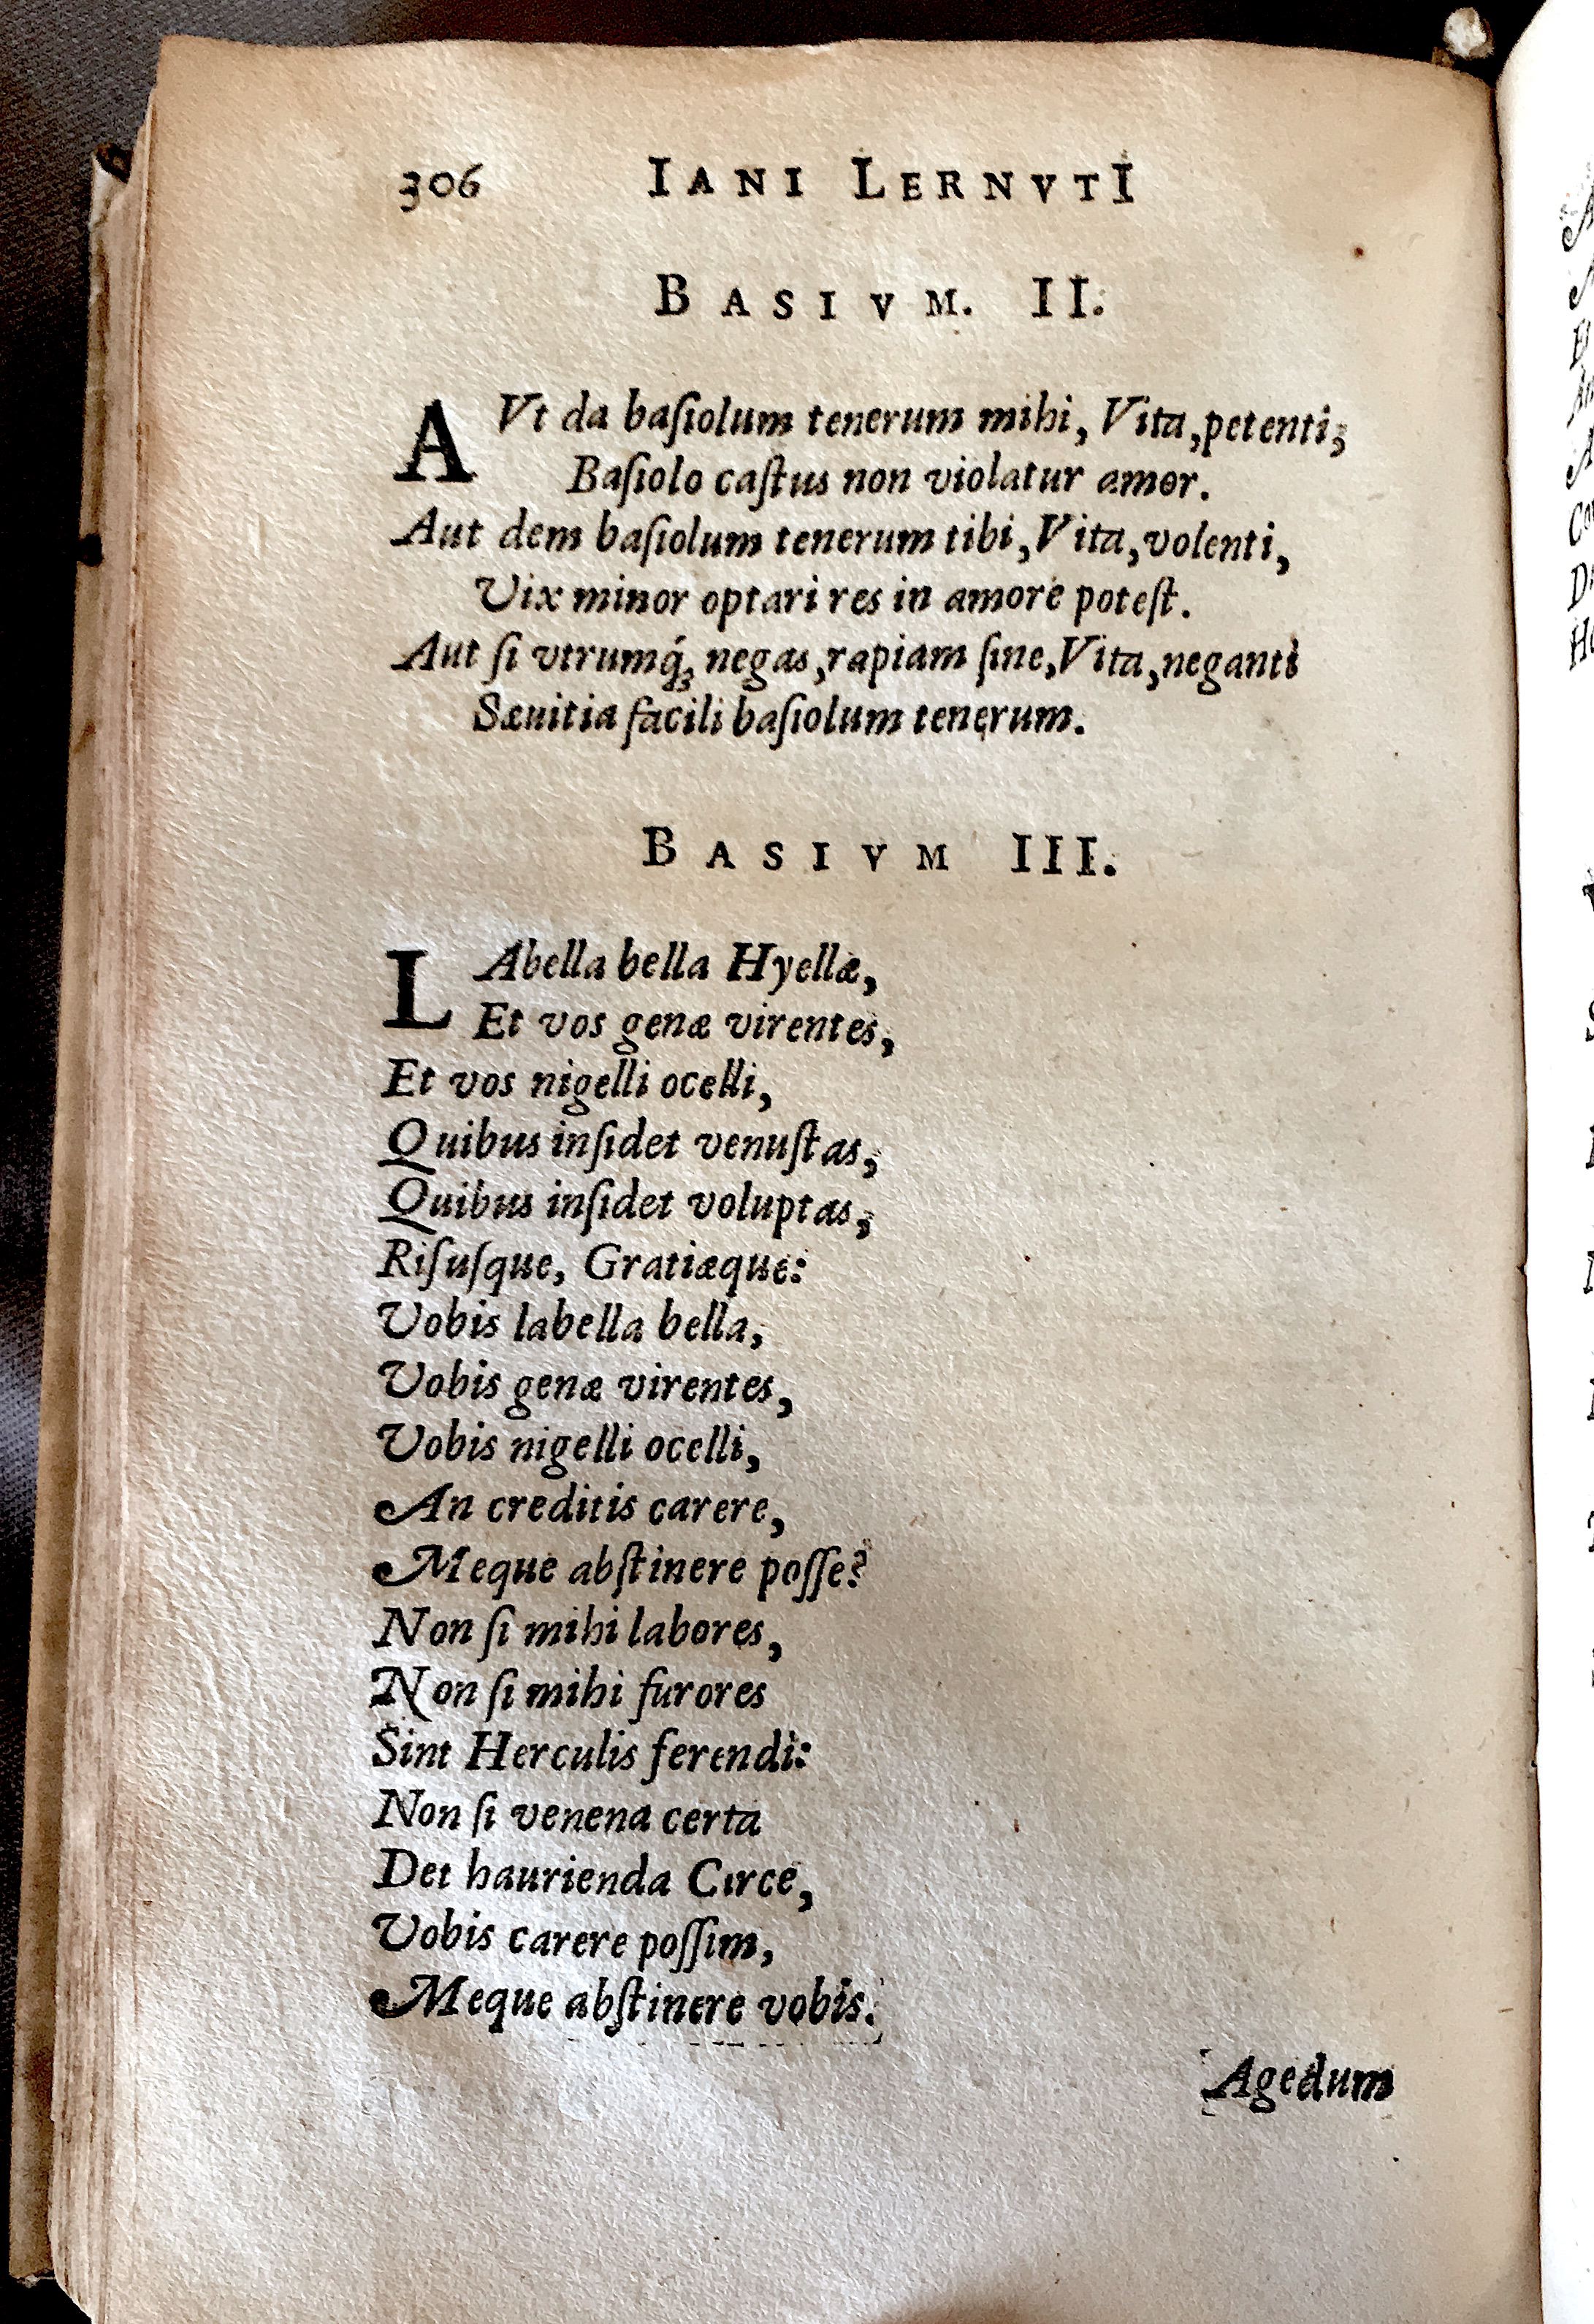 306 IANI LERNVTI
BASIVM. II.
AVt da baſiolum tenerum mihi, Vita, petenti;
Baſiolo caſtus non violatur amor.
Aut dem baſiolum tenerum tibi, Vita, volenti,
Vix minor optari res in amore poteſt.
Aut ſi vtrumq́; negas, rapiam ſine, Vita, neganti
Sæuitia facili baſiolum tenerum.
BASIVM III.
LAbella bella Hyellæ,
Et vos genæ virentes,
Et vos nigelli ocelli,
Quibus inſidet venuſtas,
Quibus inſidet voluptas,
Riſuſque, Gratiæque:
Vobis labella bella,
Vobis genæ virentes,
Vobis nigelli ocelli,
An creditis carere,
Meque abſtinere poſſe?
Non ſi mihi labores,
Non ſi mihi furores
Sint Herculis ferendi:
Non ſi venena certa
Det haurienda Circe,
Vobis carere poſſim,
Meque abſtinere vobis.
Agedum